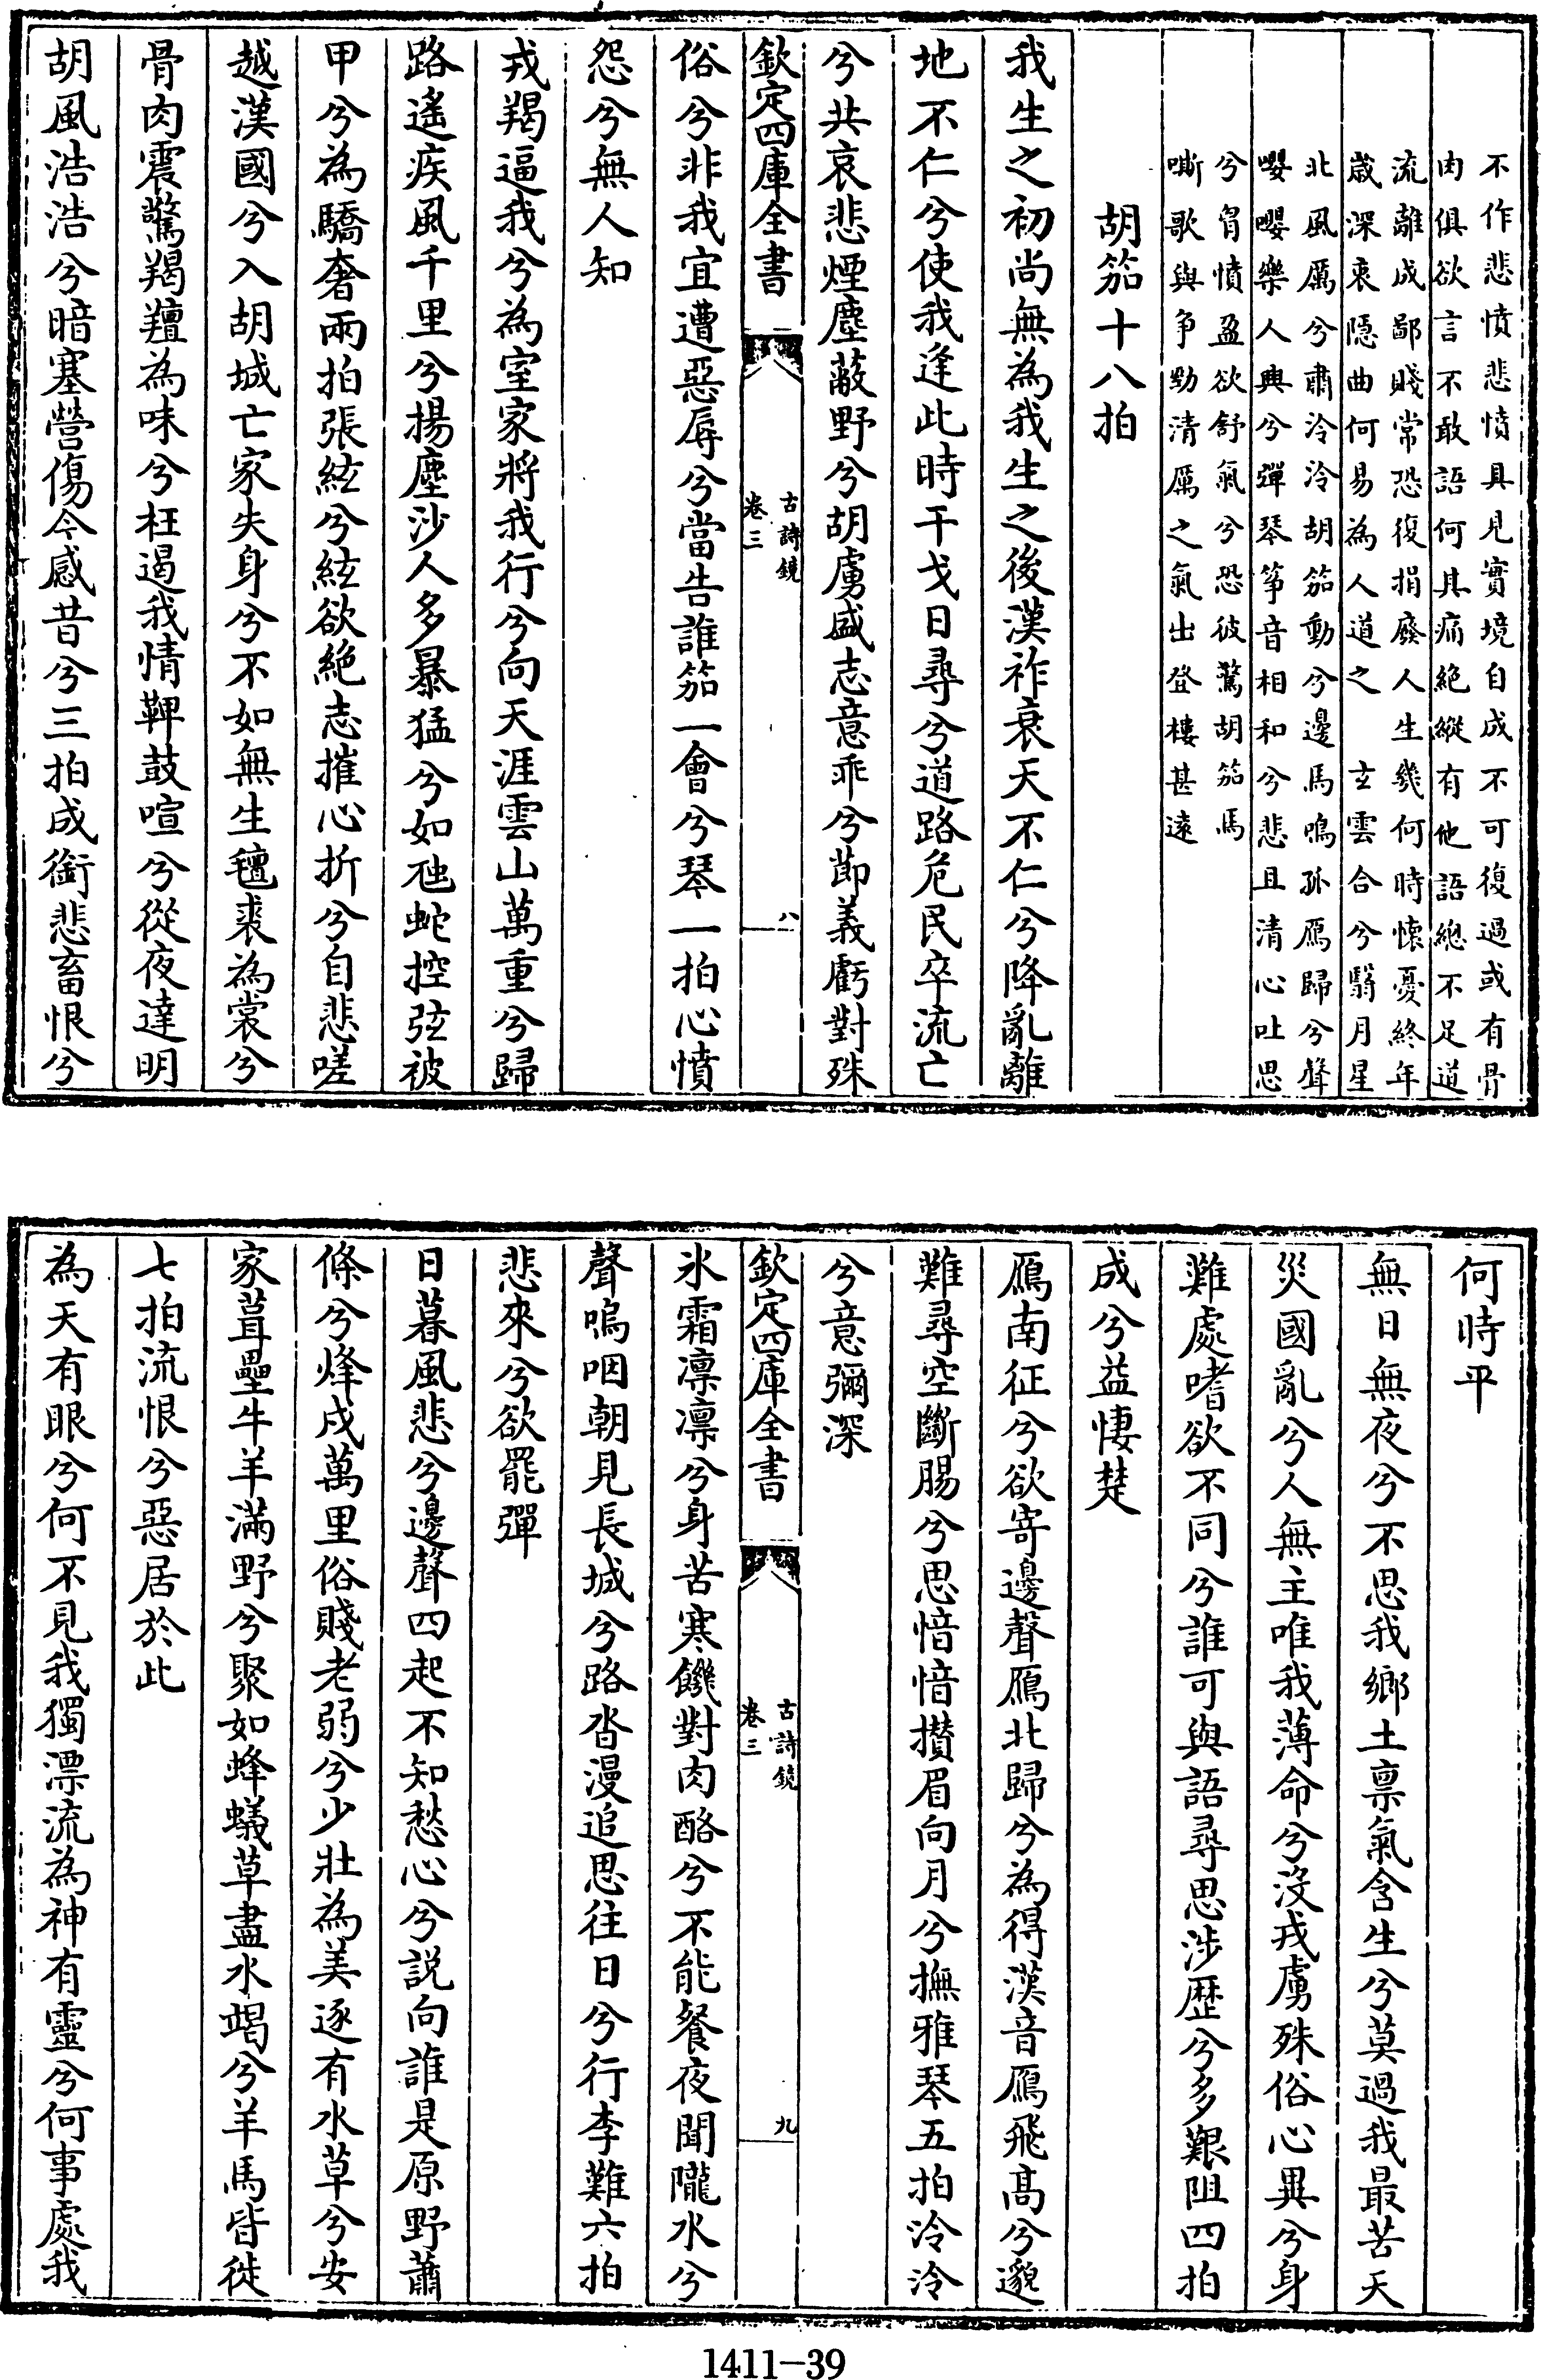 不作悲憤悲憤具見實境自成不可復過或有骨
肉俱欲言不敢語何其痛絶縱有他語總不足道
流離成鄙賤常恐復捐廢人生幾何時懷憂終年
嵗深衷隱曲何易為人道之　玄雲合兮翳月星
北風厲兮肅泠泠胡笳動兮邊馬鳴孤鴈歸兮聲
嚶嚶樂人興兮彈琴筝音相和兮悲且清心吐思
兮胷憤盈欲舒氣兮恐彼驚胡笳馬
嘶歌與争勁清厲之氣出登樓甚逺
胡笳十八拍
我生之初尚無為我生之後漢祚衰天不仁兮降亂離
地不仁兮使我逢此時干戈日尋兮道路危民卒流亡
兮共哀悲煙塵蔽野兮胡虜盛志意乖兮節義虧對殊
欽定四庫全書
古詩鏡
卷三
八
俗兮非我宜遭惡辱兮當告誰笳一會兮琴一拍心憤
怨兮無人知
戎羯逼我兮為室家將我行兮向天涯雲山萬重兮歸
路遙疾風千里兮揚塵沙人多暴猛兮如虺蛇控弦被
甲兮為驕奢兩拍張絃兮絃欲絶志摧心折兮自悲嗟
越漢國兮入胡城亡家失身兮不如無生氊裘為裳兮
骨肉震驚羯羶為味兮枉遏我情鞞鼓喧兮從夜達明
胡風浩浩兮暗塞營傷今感昔兮三拍成銜悲畜恨兮
何時平
無日無夜兮不思我鄉土禀氣含生兮莫過我最苦天
災國亂兮人無主唯我薄命兮沒戎虜殊俗心異兮身
難處嗜欲不同兮誰可與語尋思涉歴兮多艱阻四拍
成兮益悽楚
鴈南征兮欲寄邊聲鴈北歸兮為得漢音鴈飛髙兮邈
難尋空斷腸兮思愔愔攅眉向月兮撫雅琴五拍泠泠
兮意彌深
欽定四庫全書
古詩鏡
卷三
九
氷霜凛凛兮身苦寒饑對肉酪兮不能餐夜聞隴水兮
聲嗚咽朝見長城兮路沓漫追思往日兮行李難六拍
悲來兮欲罷彈
日暮風悲兮邊聲四起不知愁心兮説向誰是原野蕭
條兮烽戍萬里俗賤老弱兮少壯為美逐有水草兮安
家葺壘牛羊滿野兮聚如蜂蟻草盡水竭兮羊馬皆徙
七拍流恨兮惡居於此
為天有眼兮何不見我獨漂流為神有靈兮何事處我
1411—39